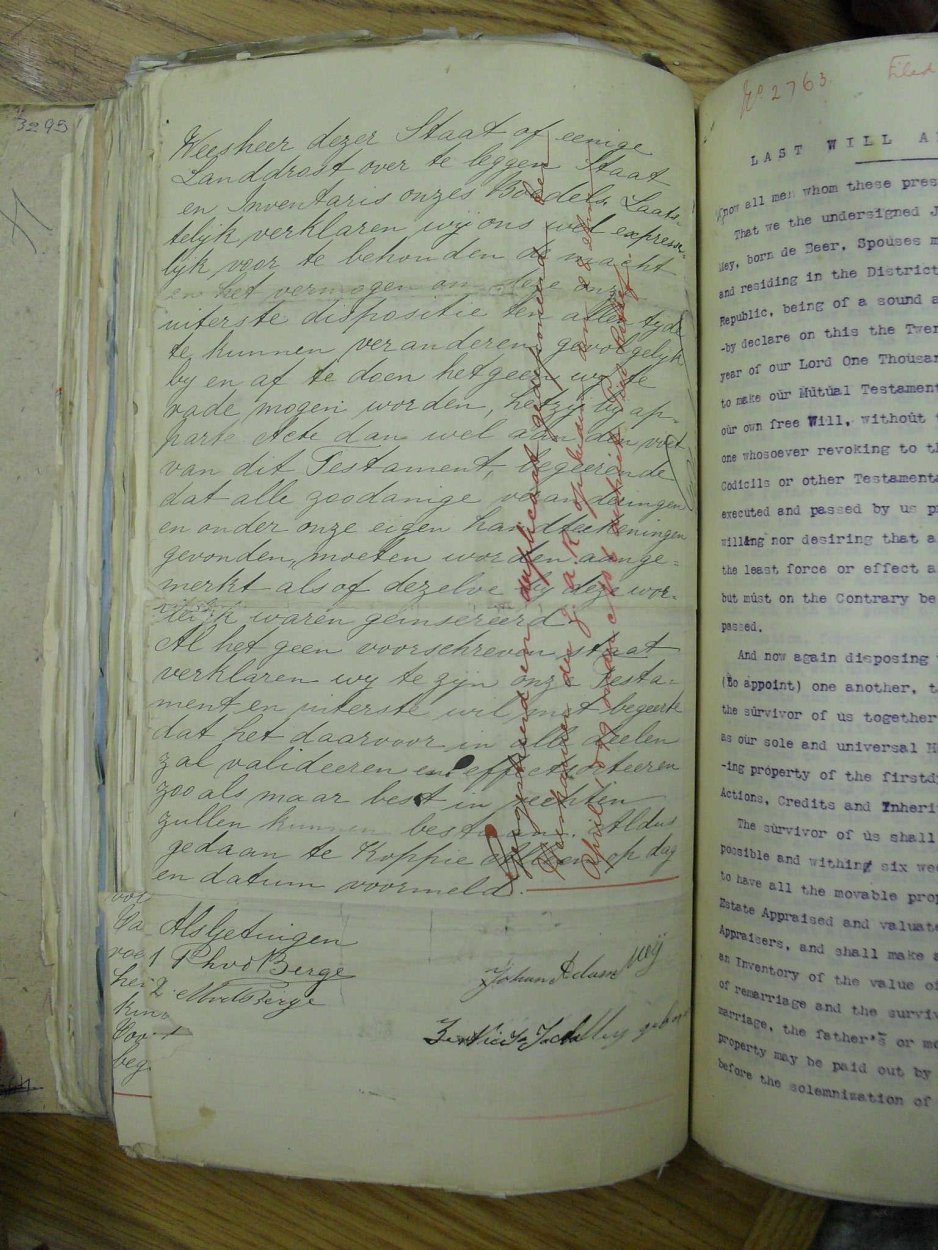 3295
Weesheer dezer Staat of eenige
Landdrost over te leggen Staat
en Inventaris onzes Boedels, Laats-
telyk verklaren wy ons wel expresse-
lyk voor te behouden de macht
en het vermogen om deze onze
uiterste dispositie ten allen tyde
te kunnen veranderen, gevolgelyk
by en af te doen hetgeen wy te
rade mogen worden, hetzy by ap-
parte Acte dan wel aan den voet
van dit Testament, begeerende
dat alle zoodanige veranderingen
en onder onze eigen handteekeningen
gevonden, moeten worden aange-
merkt als of dezelve by deze woor-
waren geinsereerd.
Al het geen voorschreven staat
verklaren wy te zyn onze Testa-
ment en uiterste wil met begeerte
dat het daarvoor in alle deelen
zal valideeren en effect sorteeren
zoo als maar best in rechten
zullen kunnen bestaan. Aldus
gedaan te Koppie op dag
en datum voormeld.
Als Getuigen
1 Berge
2
Johan Adam Meij
Mey
in duplicaat gedeponeerd
der Z. A. R. op heden den 28
April 1899
voor
Va
voe
her
kin
Voor
beg
No. 2763. Filed
LAST WILL A
Know all men whom these pres
That we the undersigned J
Mey, born de Beer, Spouses m
and residing in the District
Republic, being of a sound a
-by declare on this the Twen
year of our Lord One Thousan
to make our Mutual Testament
our own free Will, without
one whosoever revoking to th
Codicils or other Testamenta
executed and passed by us pr
willing nor desiring that a
the least force or effect a
but must on the Contrary be
passed.
And now again disposing
(to appoint) one another, t
the survivor of us together
as our sole and universal H
-ing property of the firstd
Actions, Credits and Inheri
The survivor of us shall
possible and withing six wee
to have all the movable prop
Estate Appraised and valuate
Appraisers, and shall make a
an Inventory of the value of
of remarriage and the surviv
marriage, the father's or mo
property may be paid out by
before the solemnization of